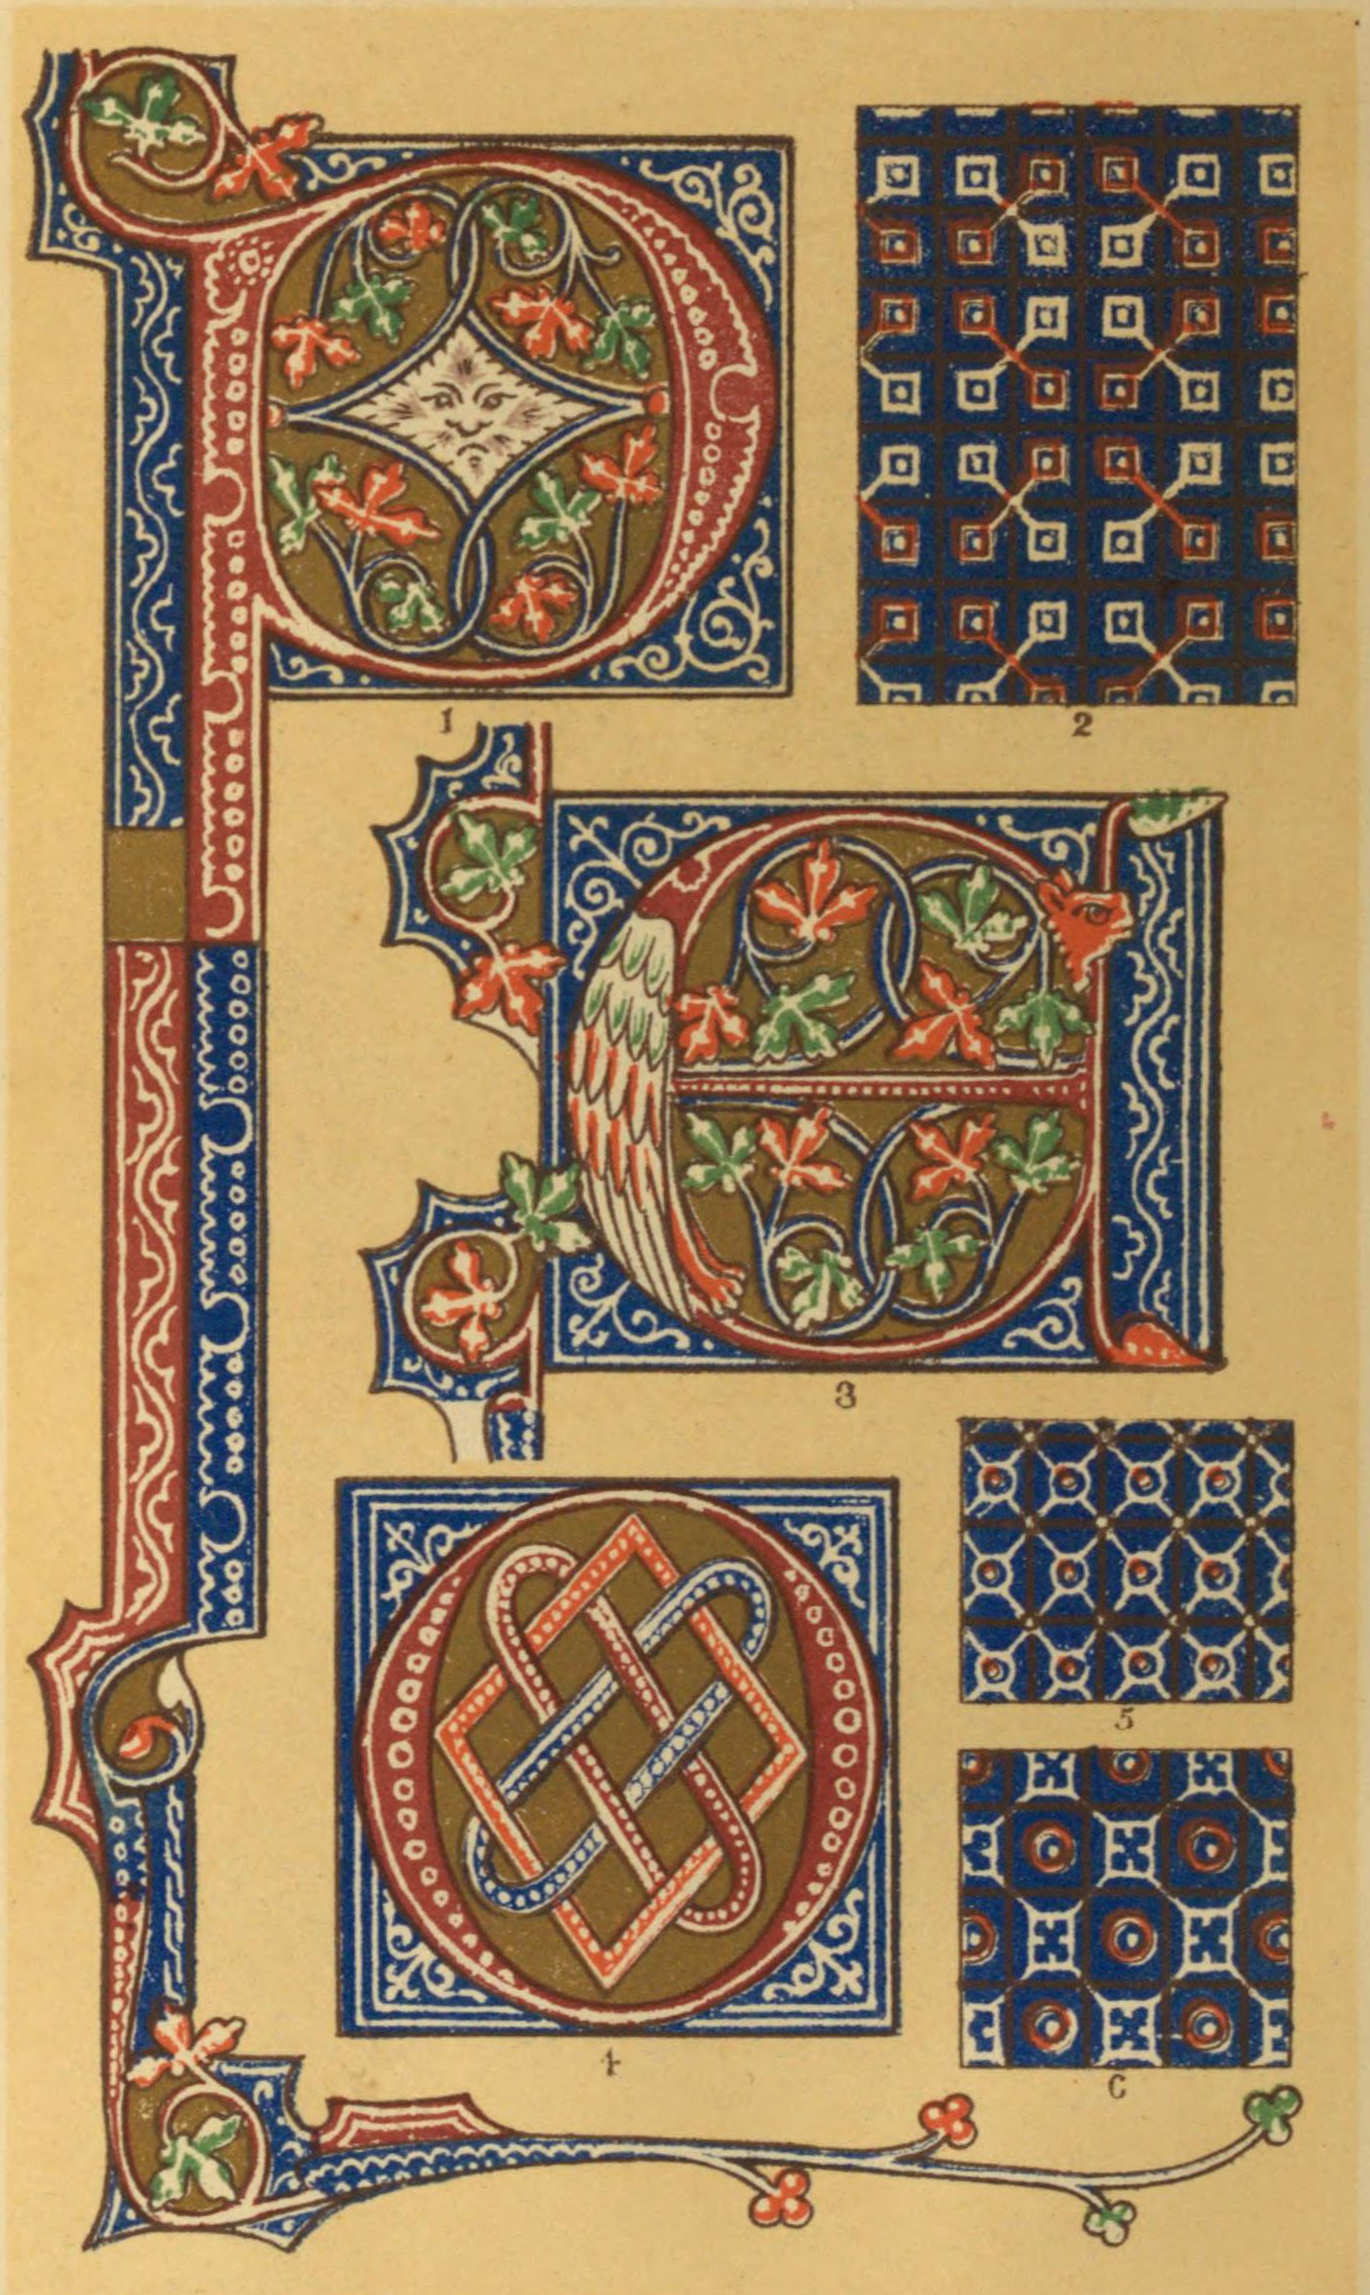 P
1
2
E
3
O
4
5
6